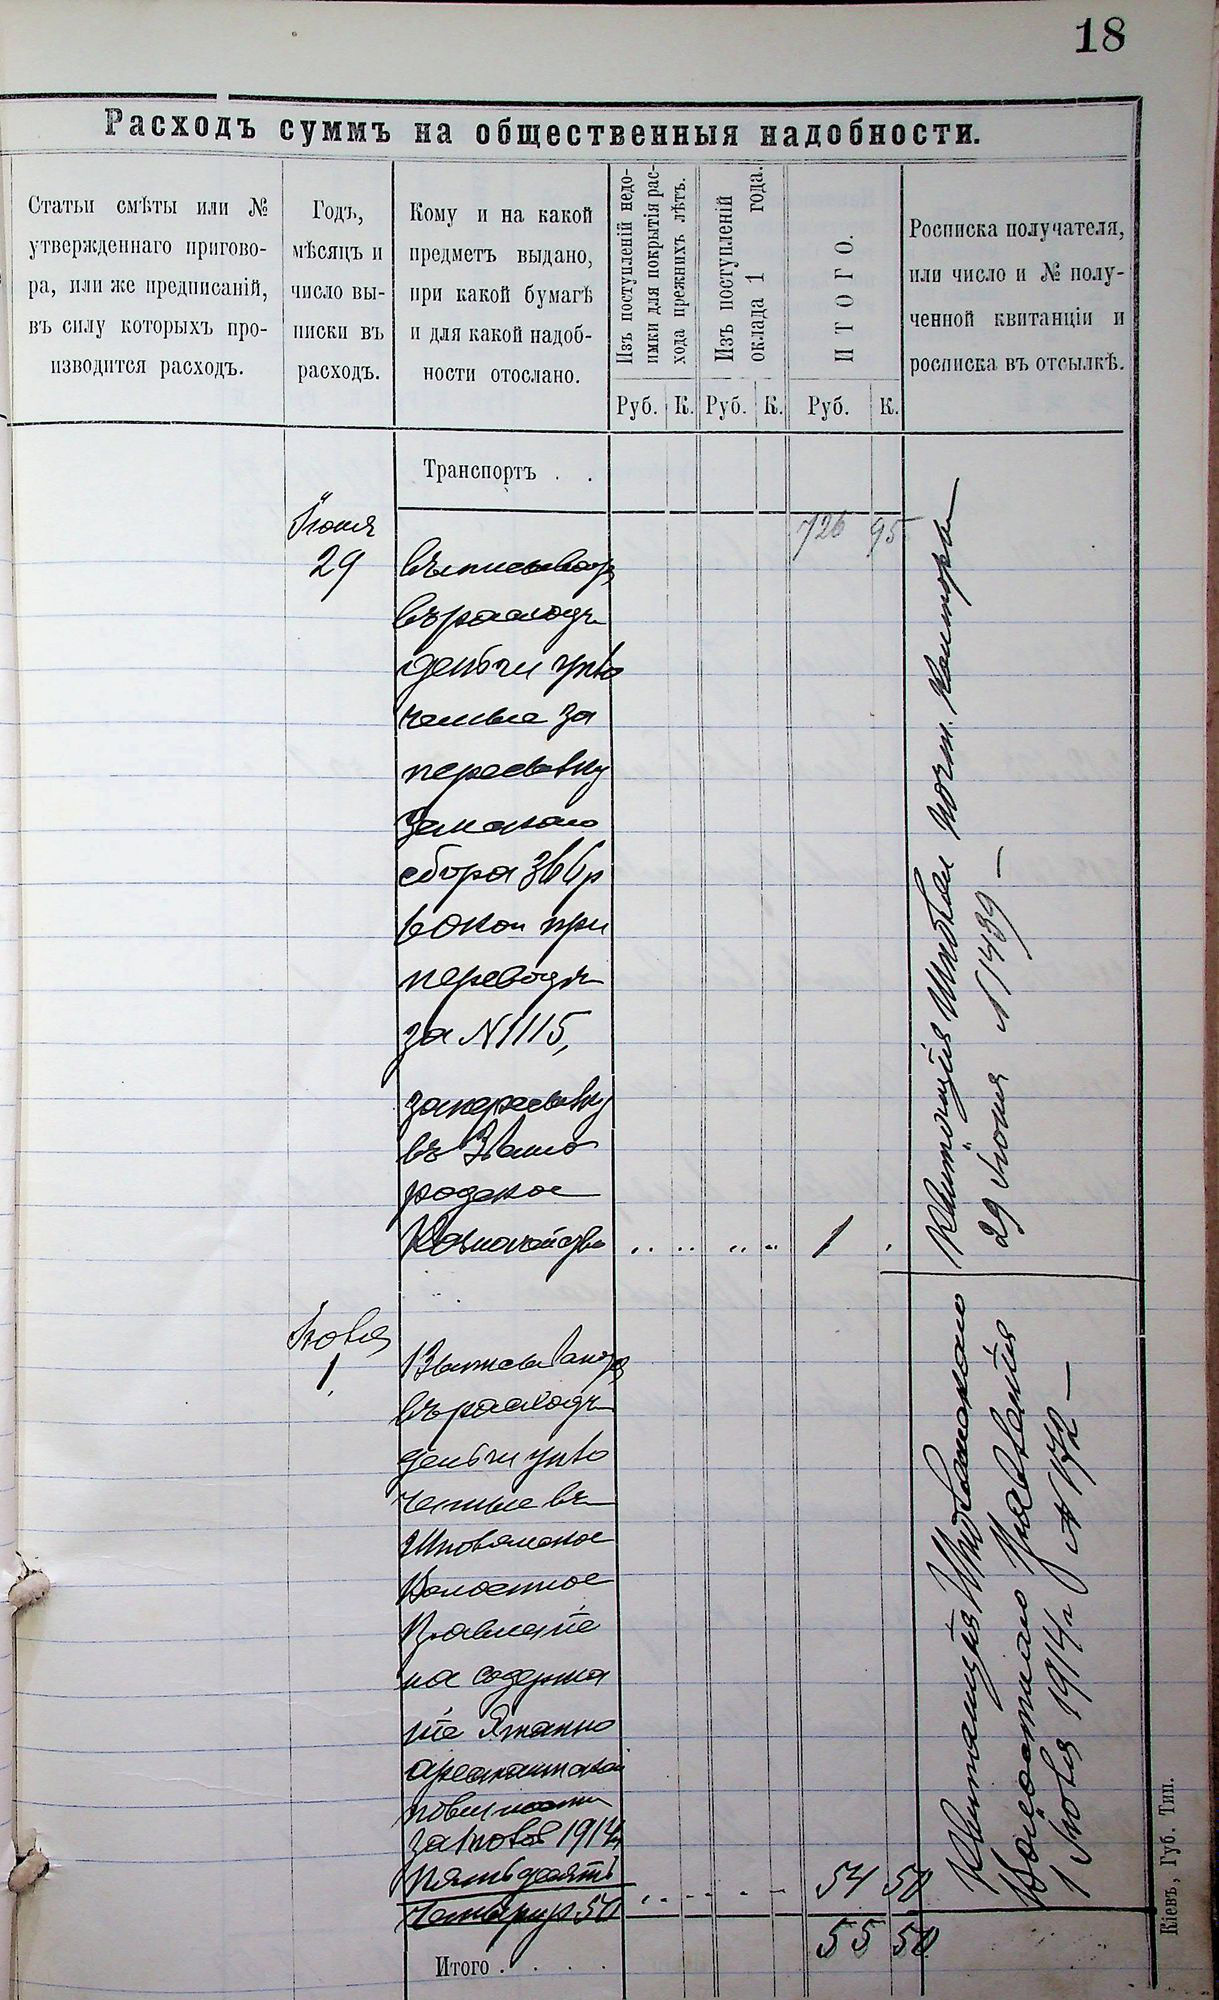 18
Расходъ суммъ на общественныя надобности.
Статьи смѣты или №
утвержденнаго пригово-
ра, или же предписаній,
въ силу которыхъ про-
изводится расходъ.
Годъ,
мѣсяцъ и
число вы-
писки въ
расходъ.
Кому и на какой
предметъ выдано,
при какой бумагѣ
и для какой надоб-
ности отослано.
Изъ поступленій недо-
имки для покрытія рас-
хода прежнихъ лѣтъ.
Изъ поступленій
оклада 1 года.
ИТОГО.
Росписка получателя,
или число и № полу-
ченной квитанціи и
росписка въ отсылкѣ.
Руб. К. Руб. К. Руб. К.
Транспортъ . .
726 95
Іюня
29
Выписываю
въ расходъ
деньги упло
ченные за
пересылку
Земскаго
сбора 366 р
60 коп при
переводѣ
за N 1115,
за пересылку
въ Звено
родское
Казначейство
1
Квитанція Шполян почт. Конторы
29 Іюня N 1439 –
Іюля
1
въ расходъ
деньги упло
ченные въ
Шполянское
Волостное
Правленіе
на содержа
ніе Этапно
арестантской
повинности
за Іюль 1914 г
пятьдесять
четыре р 50
54 50
Квитанція Шполянскаго
Волостнаго Правленія
1 Іюля 1914 г N 172 –
55 50
Итого . . . .
Кіевъ, Губ. Тип.